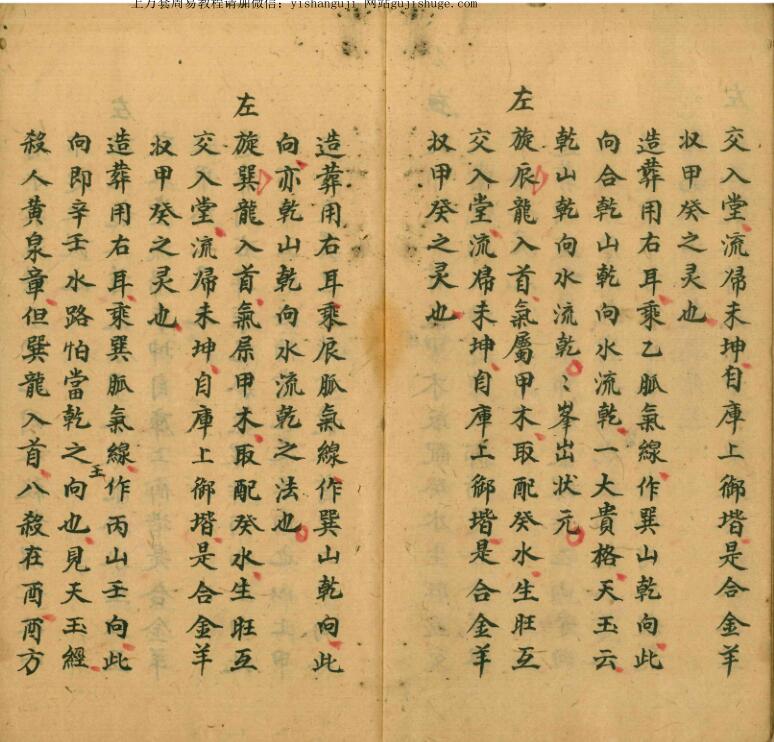 上万套周易教程请加微信：yishanguji 网站gujishuge.com
交入堂流㷌未坤自庫上御堦是合金羊
収甲癸之灵也
造葬用右耳乘乙脈氣線作巽山乾向此
向合乾山乾向水流乾一大貴格天玉云
乾山乾向水流乾〻峯出状元
左旋辰龍入首氣屬甲木取配癸水生旺互
交入堂流歸未坤自庫上御堦是合金羊
収甲癸之灵也
造葬用右耳乘辰脈氣線作巽山乾向此
向亦乾山乾向水流乾之法也
左旋巽龍入首氣屬甲木取配癸水生旺互
交入堂流歸未坤自庫上御堦是合金羊
収甲癸之灵也
造葬用右耳乘巽脈氣線作丙山壬向此
向即辛壬水路怕當乾之向也見天玉經
玉
殺人黄泉章但巽龍入首八殺在酉酉方